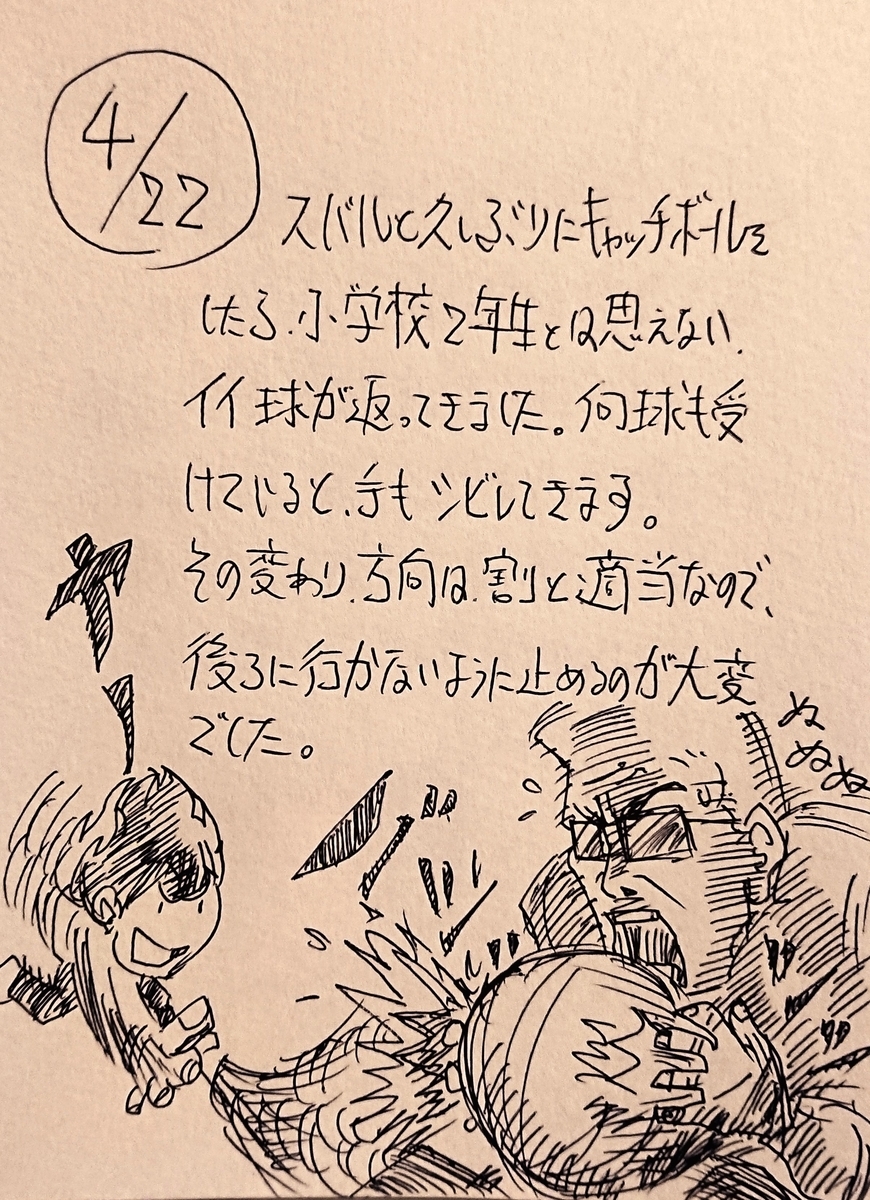 4/22
スバルと久しぶりにキャッチボールを
したら、小学校2年生とは思えない、
イイ球が返ってきました。何球も受
けていると、手もシビレてきます。
その変わり、方向は、割と適当なので、
後ろに行かないように止めるのが大変
でした。
ぬ
ぬぬぬ